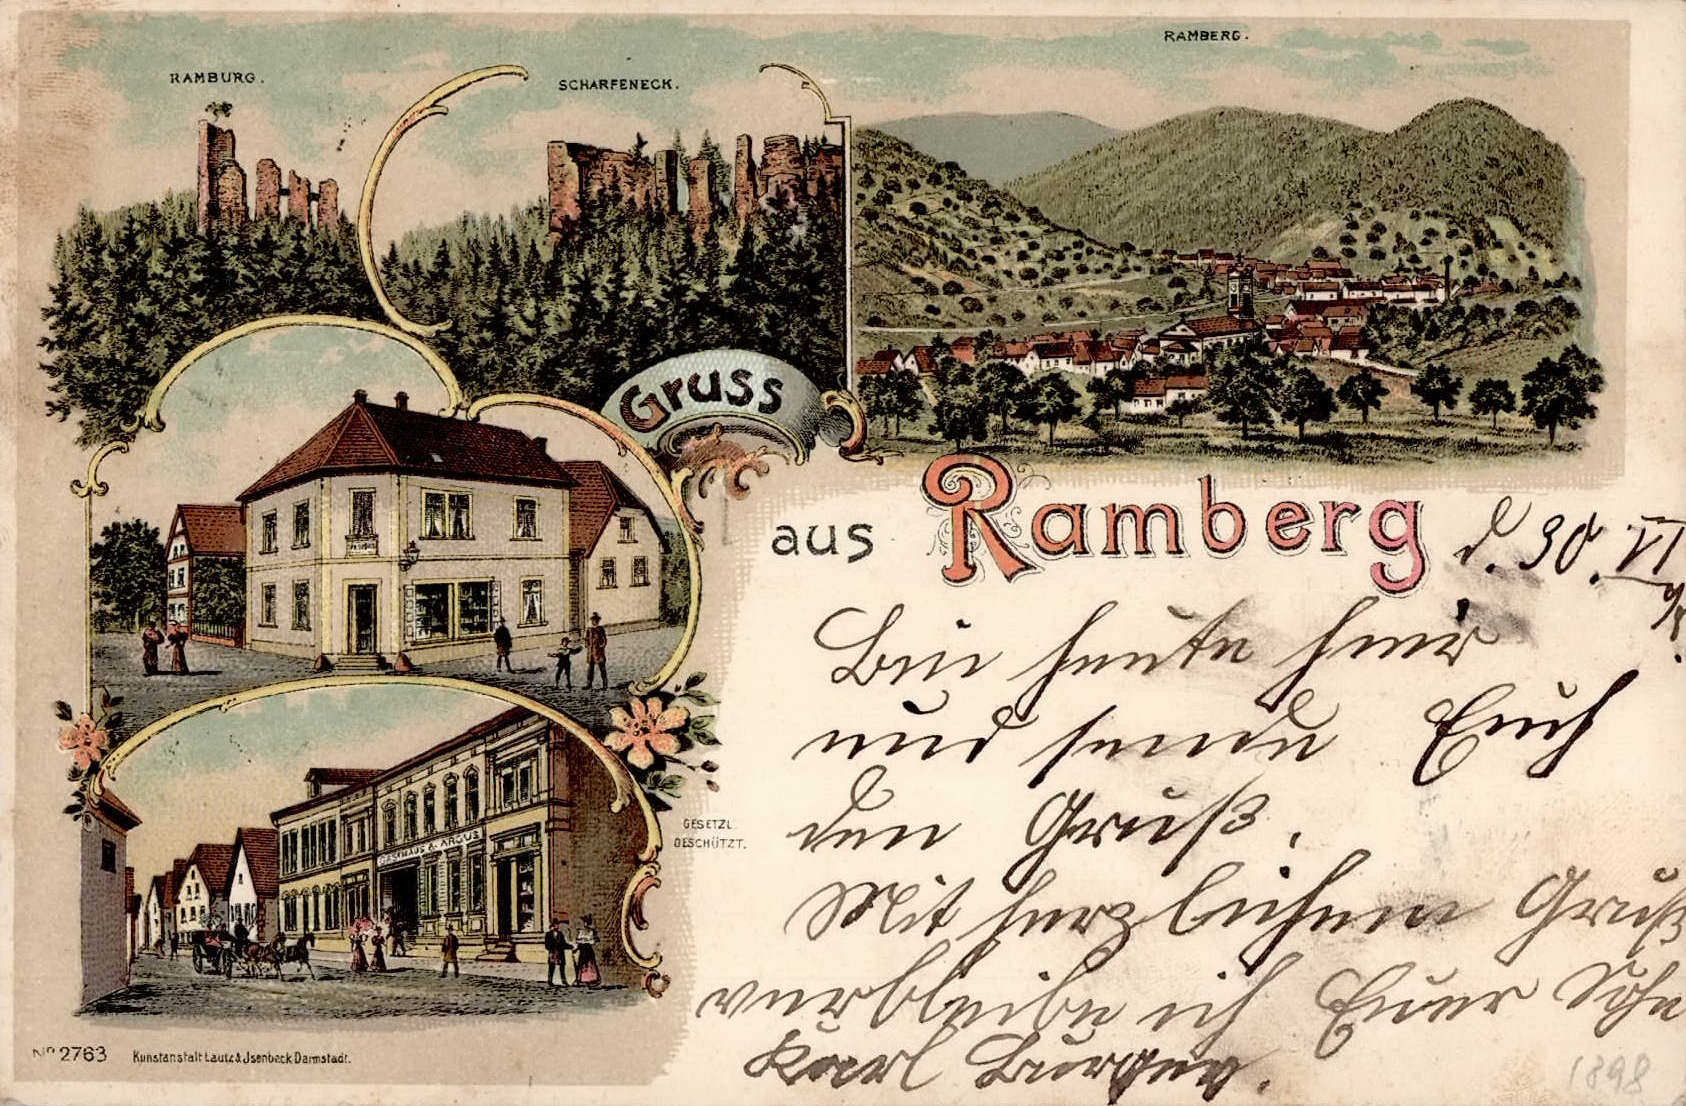 RAMBURG.
SCHARFENECK.
RAMBERG.
Gruss
aus Ramberg
d. 30. VI
98.
Bin heute hier
und sende Euch
den Gruß.
Mit herzlichem Gruß
verbleibe ich Euer Sohn
Karl Burger.
GASTHAUS Z. ARGUS
GESETZL.
GESCHÜTZT.
No 2763 Kunstanstalt Lautz & Jsenbeck Darmstadt.
1898